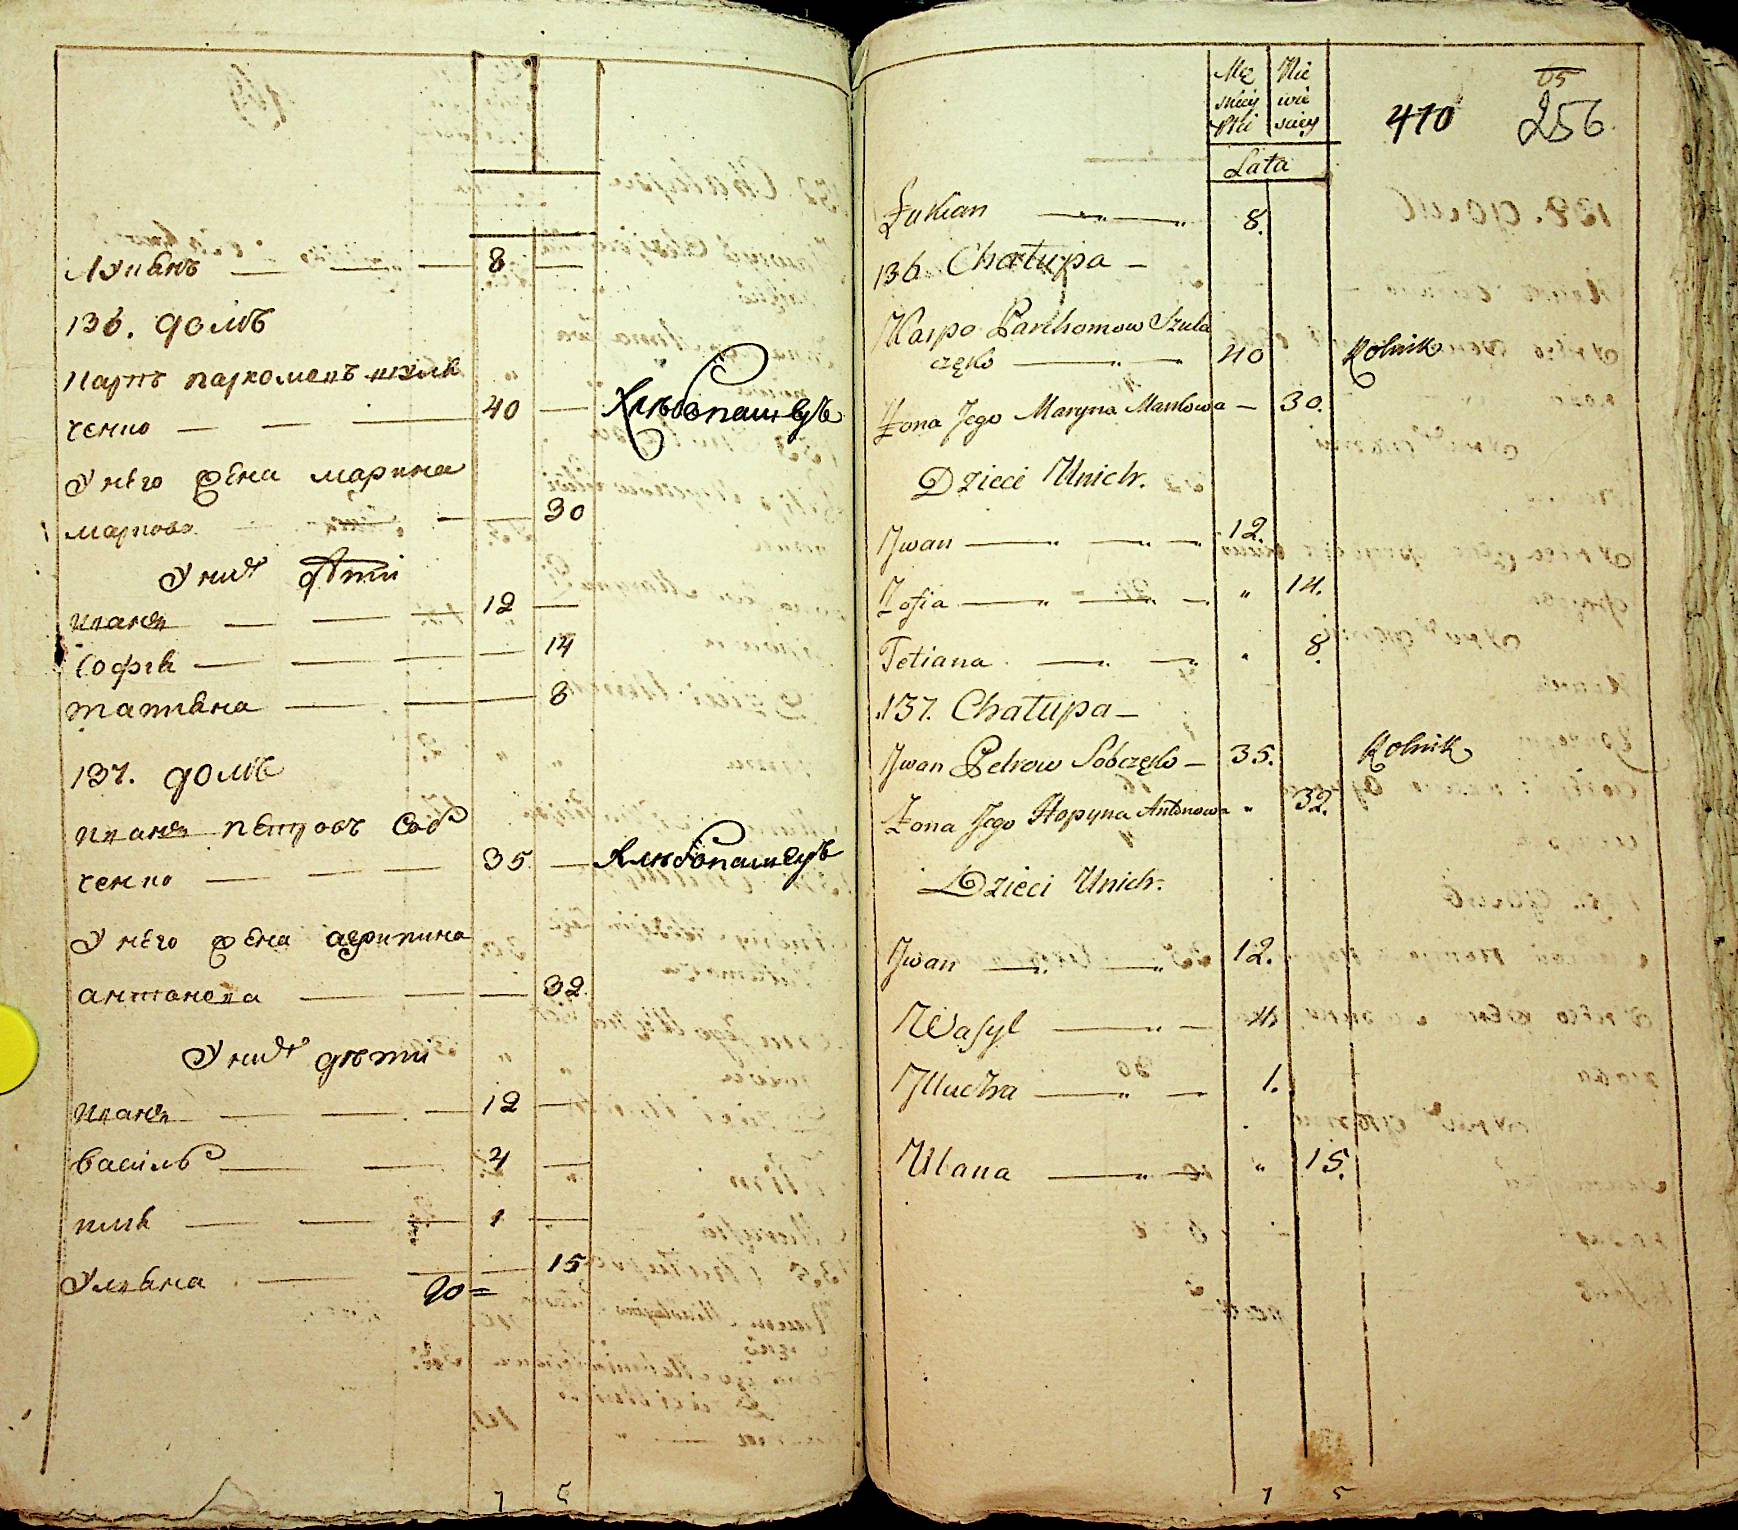 Лукѣянъ 8
136. домъ
Карпъ пархоменъ шуля
ченко 40 Хлѣбопашецъ
У него жена марина
маркова 30
У них дѣти
иванъ 12
Софія 14
татіяна 8
137. домъ
иванъ петровъ Соб
ченко 35 Хлѣбопашецъ
У него жена агрипина
антонова 32
У них дѣти
иванъ 12
василь 4
илія 1
Уліяна 15
20=
7 5
Mę Nie
skiey wie
Płci sciey
410 256
65
Lata
Łukian 8.
136. Chałupa
Karpo Parchomow Szula
częko 40 Rolnik
Żona Jego Maryna Markowa 30.
Dzieci Unich.
Jwan 12.
Zofia " 14.
Tetiana " 8.
137. Chałupa
Jwan Petrow Sobczęko 35. Rolnik
Żona Jego Hopyna Antonowa " 32.
Dzieci Unich.
Jwan 12.
Wasyl 4.
Jllucha 1.
Ulana " 15.
7 5